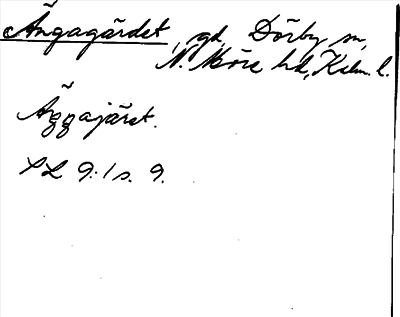 Ängagärdet, gd, Dörby sn,
N. Möre hd, Kalm. l.
Äggajäret.
SL 9:1 s. 9.